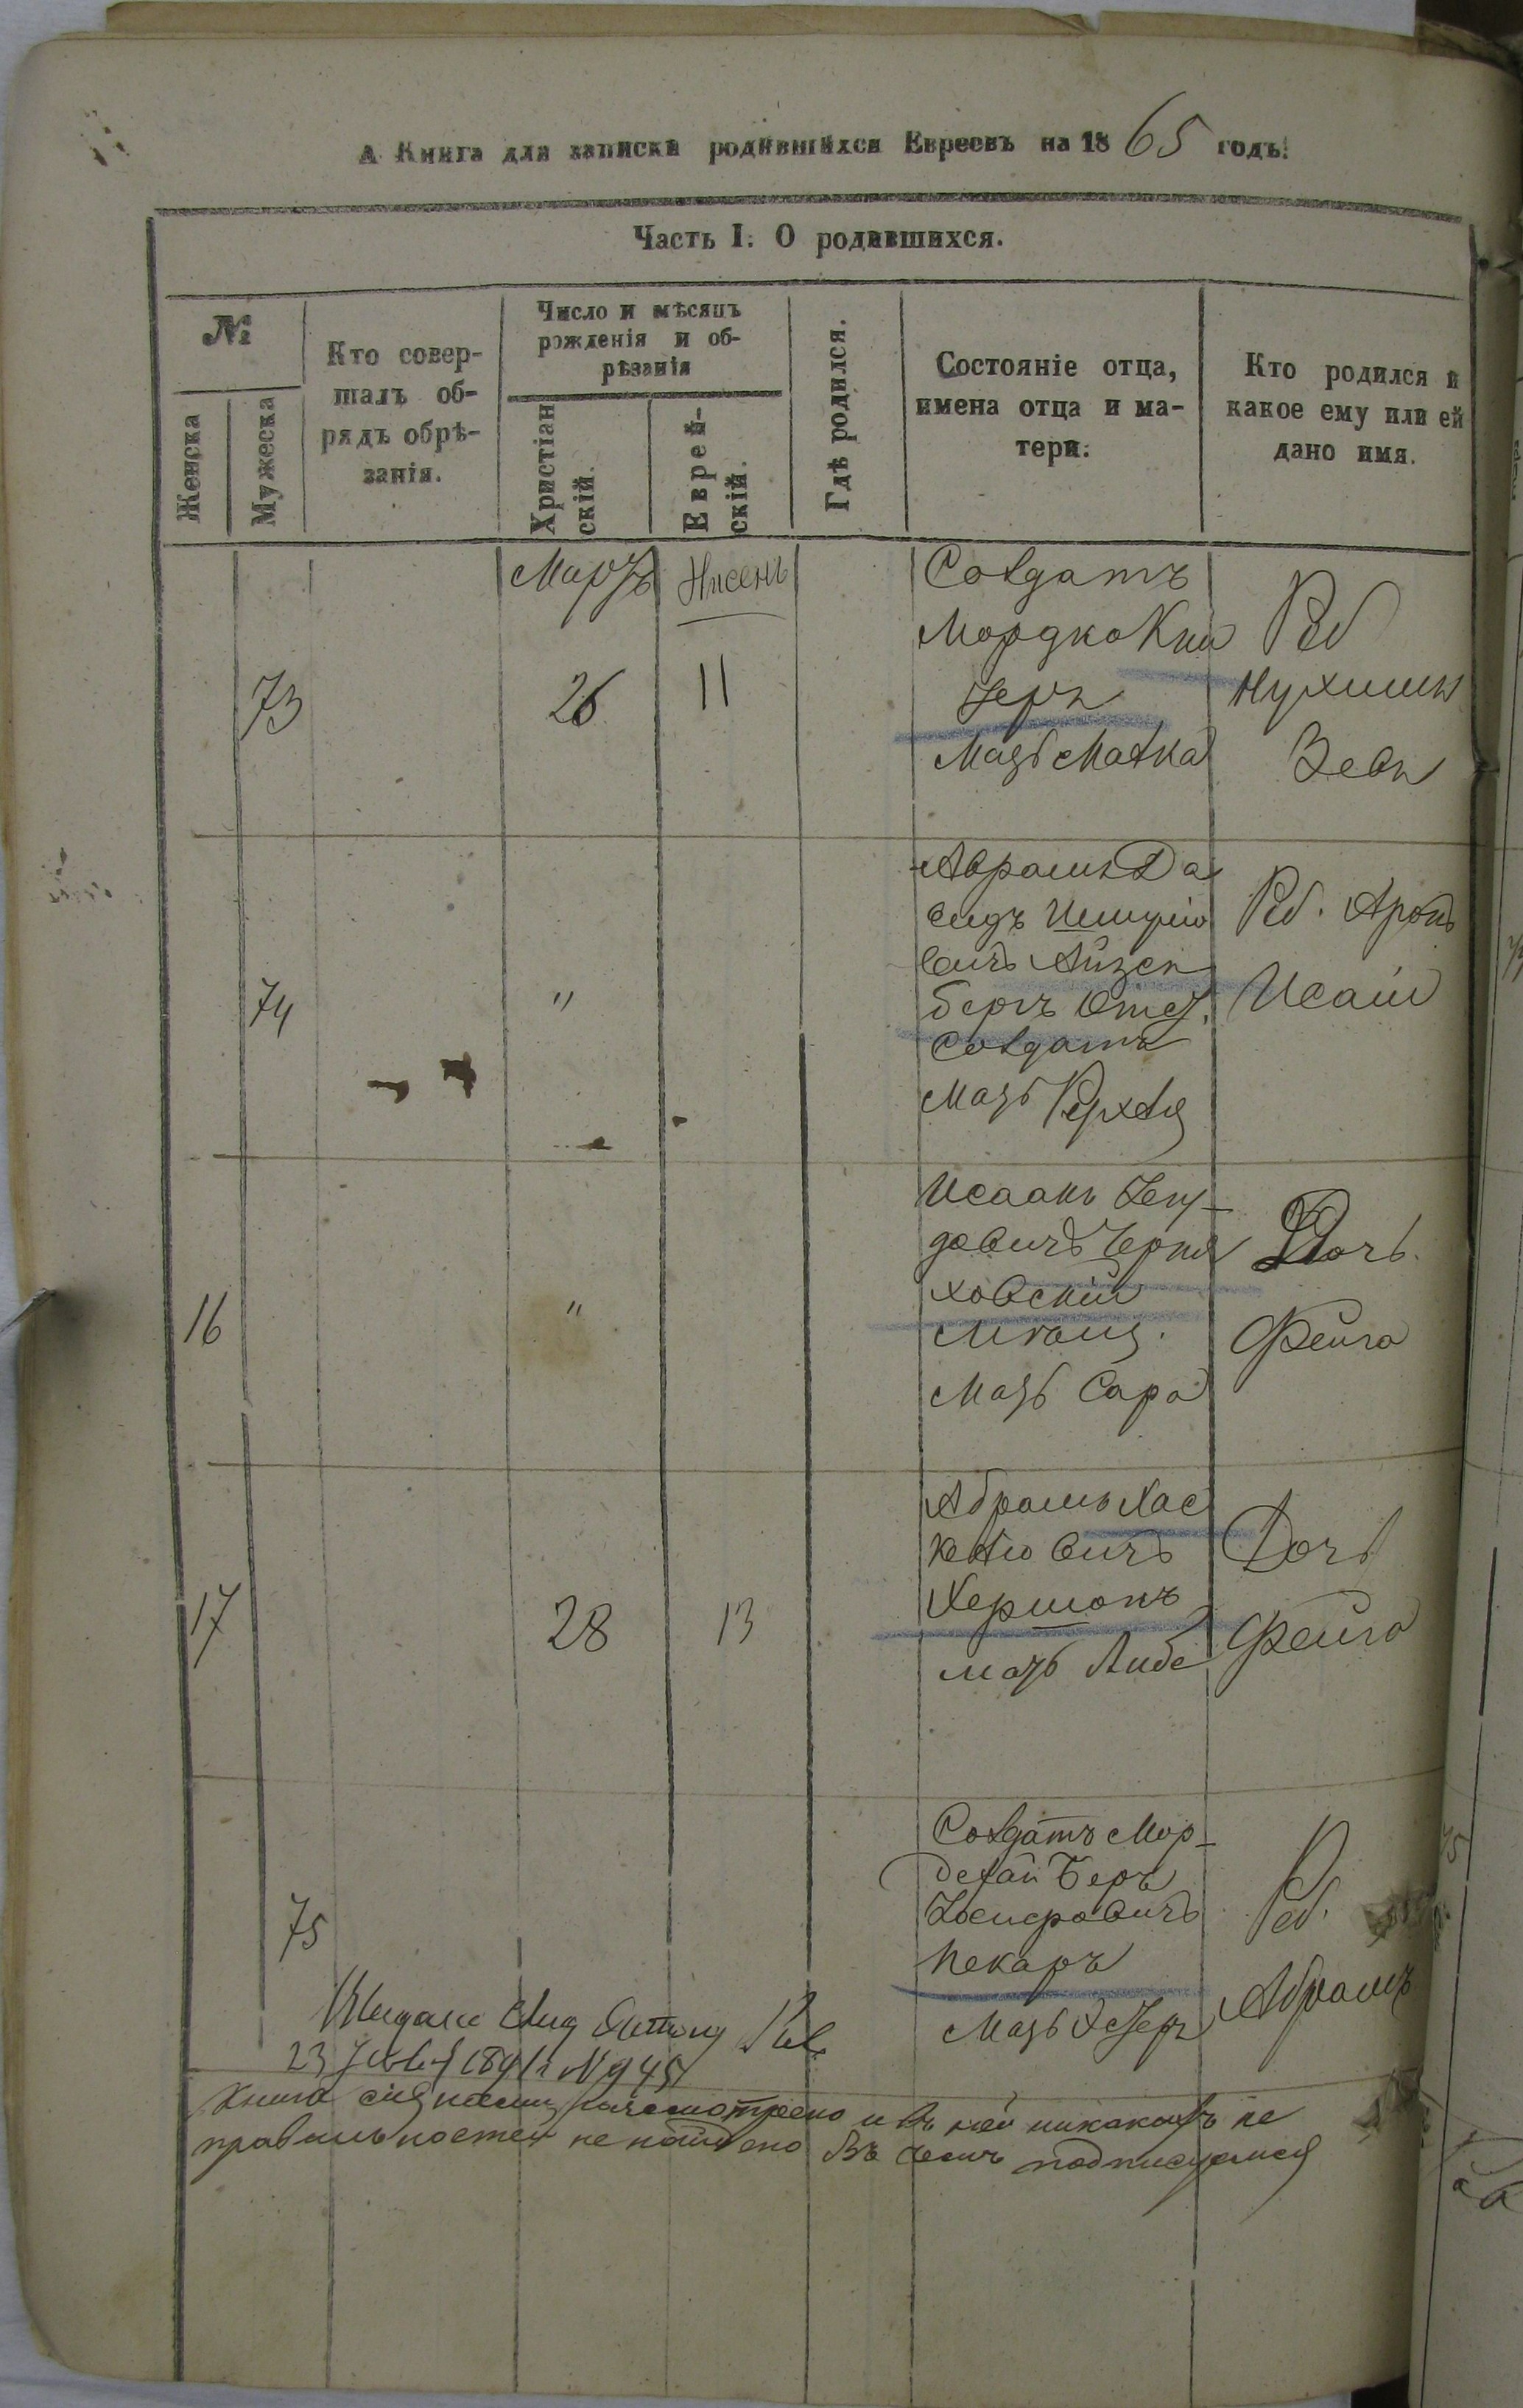 А Книга для записки родившихся Евреевъ на 1865 годъ.
Часть I. О родившихся.
№
Женска
Мужеска
Кто совер-
шалъ об-
рядъ обрѣ-
занія.
Число и мѣсяцъ
рожденія и об-
рѣзанія
Христіан
скій.
Еврей-
скій.
Гдѣ родился.
Состояніе отца,
имена отца и ма-
тери.
Кто родился и
какое ему или ей
дано имя.
Мартъ
Нисенъ
73
26
11
Солдатъ
Мордко
Мать Малка
Реб
Нухимъ
Зевъ
74
"
Аврамъ Да
видъ
вичъ Айзен
бергъ
Солдатъ
Мать Рухля
Реб. Аронъ
Исай
16
"
Исаакъ
довичъ Черня
ховскій
Мѣщ.
Мать Сара
Дочь.
Фейга
17
28
13
Абрамъ Хас
келіовичъ
Хершонъ
мать Либе
Дочь
Фейга
75
Солдатъ Мор-
дехай Беръ
Іосифовичъ
Пекаръ
Мать Эстеръ
Реб.
Абрамъ
23
Книга сія нами разсмотрено и въ ней никакихъ не
правильностей не найдено въ чемъ подписуемся